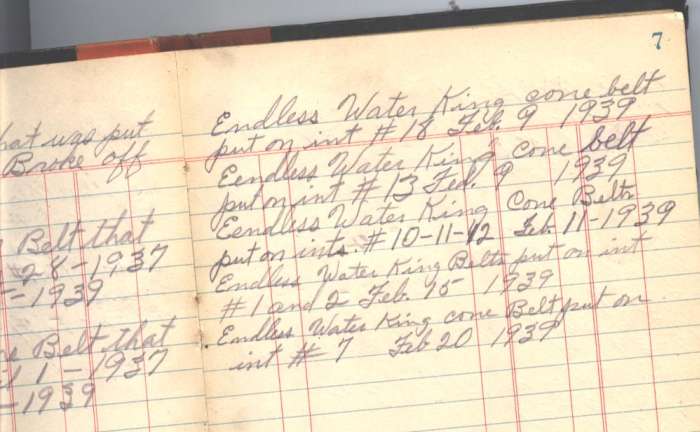 7
hat was put
Broke off
Belt that
28-1937
-1939
Belt that
1-1937
-1939
Endless Water King cone belt
put on int # 18 Feb. 9 1939
Eendless Water King Cone belt
put on int # 13 Feb. 9 1939
Eendless Water King Cone Belts
put on ints. # 10-11-12 Feb. 11-1939
Endless Water King Belts put on int
# 1 and 2 Feb. 15 1939
Endless Water King cone Belt put on
int # 7 Feb 20 1939